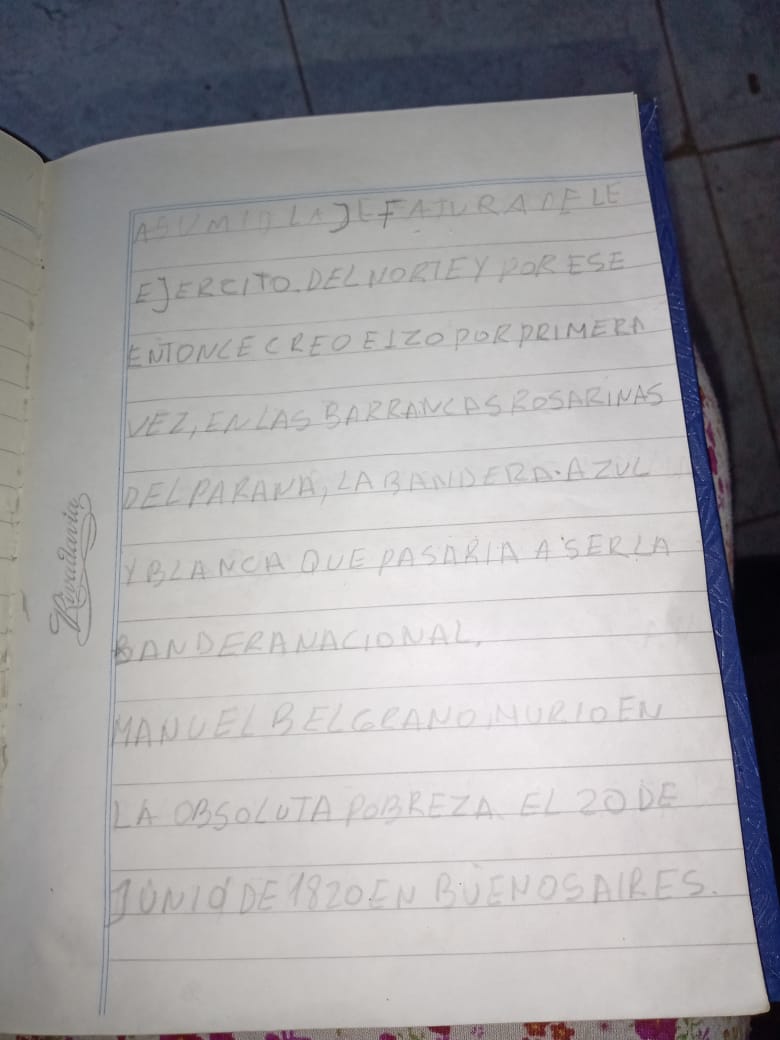 ASUMIO LA JEFATURA DE LE
EJERCITO. DEL NORTE Y POR ESE
ENTONCE CREO E IZO POR PRIMERA
VEZ, EN LAS BARRANCAS ROSARINAS
DEL PARANA, LA BANDERA. AZUL
Y BLANCA QUE PASARIA A SER LA
BANDERA NACIONAL.
MANUEL BELGRANO, MURIO EN
LA OBSOLUTA POBREZA EL 20 DE
JUNIO DE 1820 EN BUENOS AIRES.
Rivadavia